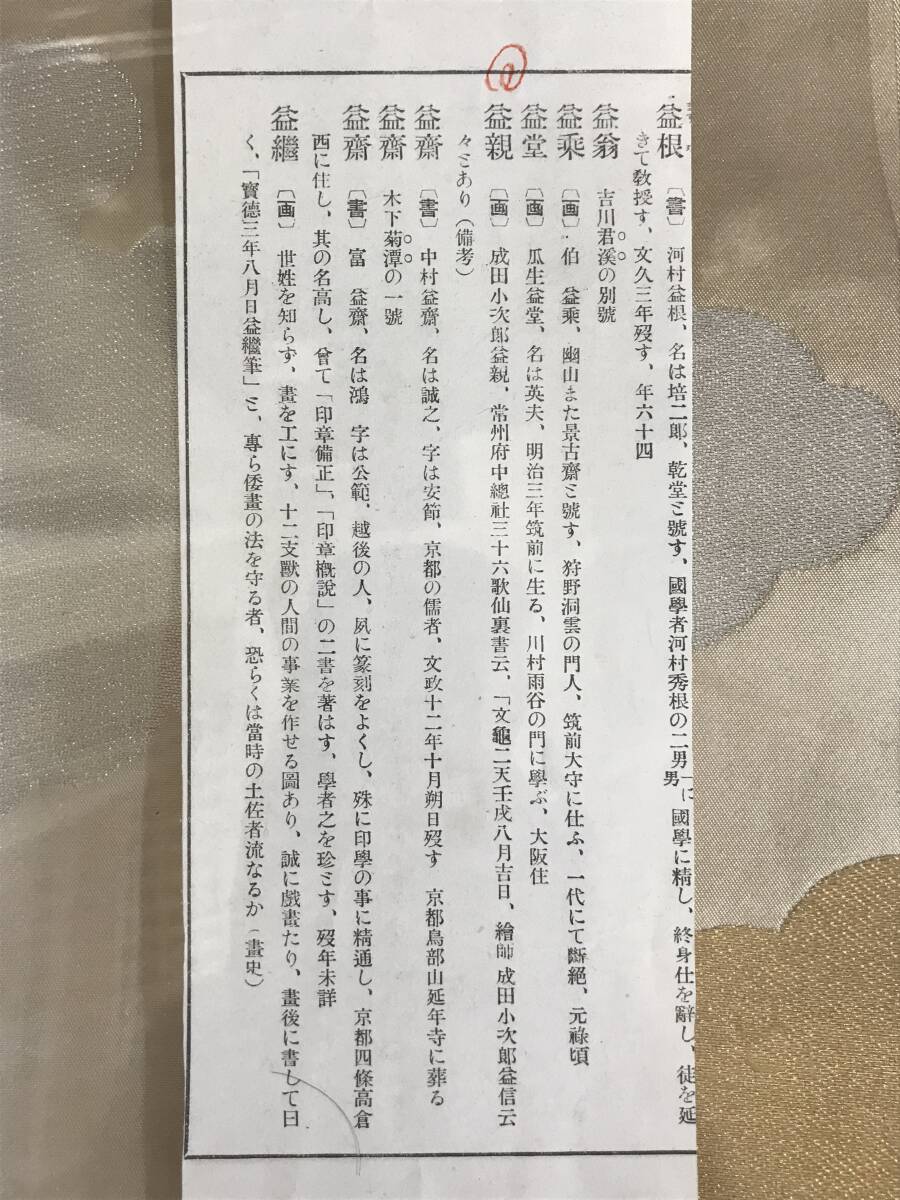 益根 〔書〕 河村益根、名は培二郎、乾堂と號す、國學者河村秀根の二男一に男國學に精し、終身仕を辭し、徒を延
きて敎授す、文久三年歿す、年六十四
益翁 吉川君溪の別號
益乘 〔画〕 伯 益乘、幽山また景古齋と號す、狩野洞雲の門人、筑前大守に仕ふ、一代にて斷絶、元祿頃
益堂 〔画〕 瓜生益堂、名は英夫、明治三年筑前に生る、川村雨谷の門に學ぶ、大阪住
益親 〔画〕 成田小次郎益親、常州府中總社三十六歌仙裏書云、「文龜二天壬戌八月吉日、繪師成田小次郎益信云
々とあり（備考）
益齋 〔書〕 中村益齋、名は誠之、字は安節、京都の儒者、文政十二年十月朔日歿す 京都鳥部山延年寺に葬る
益齋 木下菊潭の一號
益齋 〔書〕 富 益齋、名は鴻 字は公範、越後の人、夙に篆刻をよくし、殊に印學の事に精通し、京都四條高倉
西に住し、其の名高し、曾て「印章備正」、「印章槪說」の二書を著はす、學者之を珍とす、歿年未詳
益繼 〔画〕 世姓を知らず、畫を工にす、十二支獸の人間の事業を作せる圖あり、誠に戲畫たり、畫後に書して曰
く、「寶德三年八月日益繼筆」と、專ら倭畫の法を守る者、恐らくは當時の土佐者流なるか（畫史）